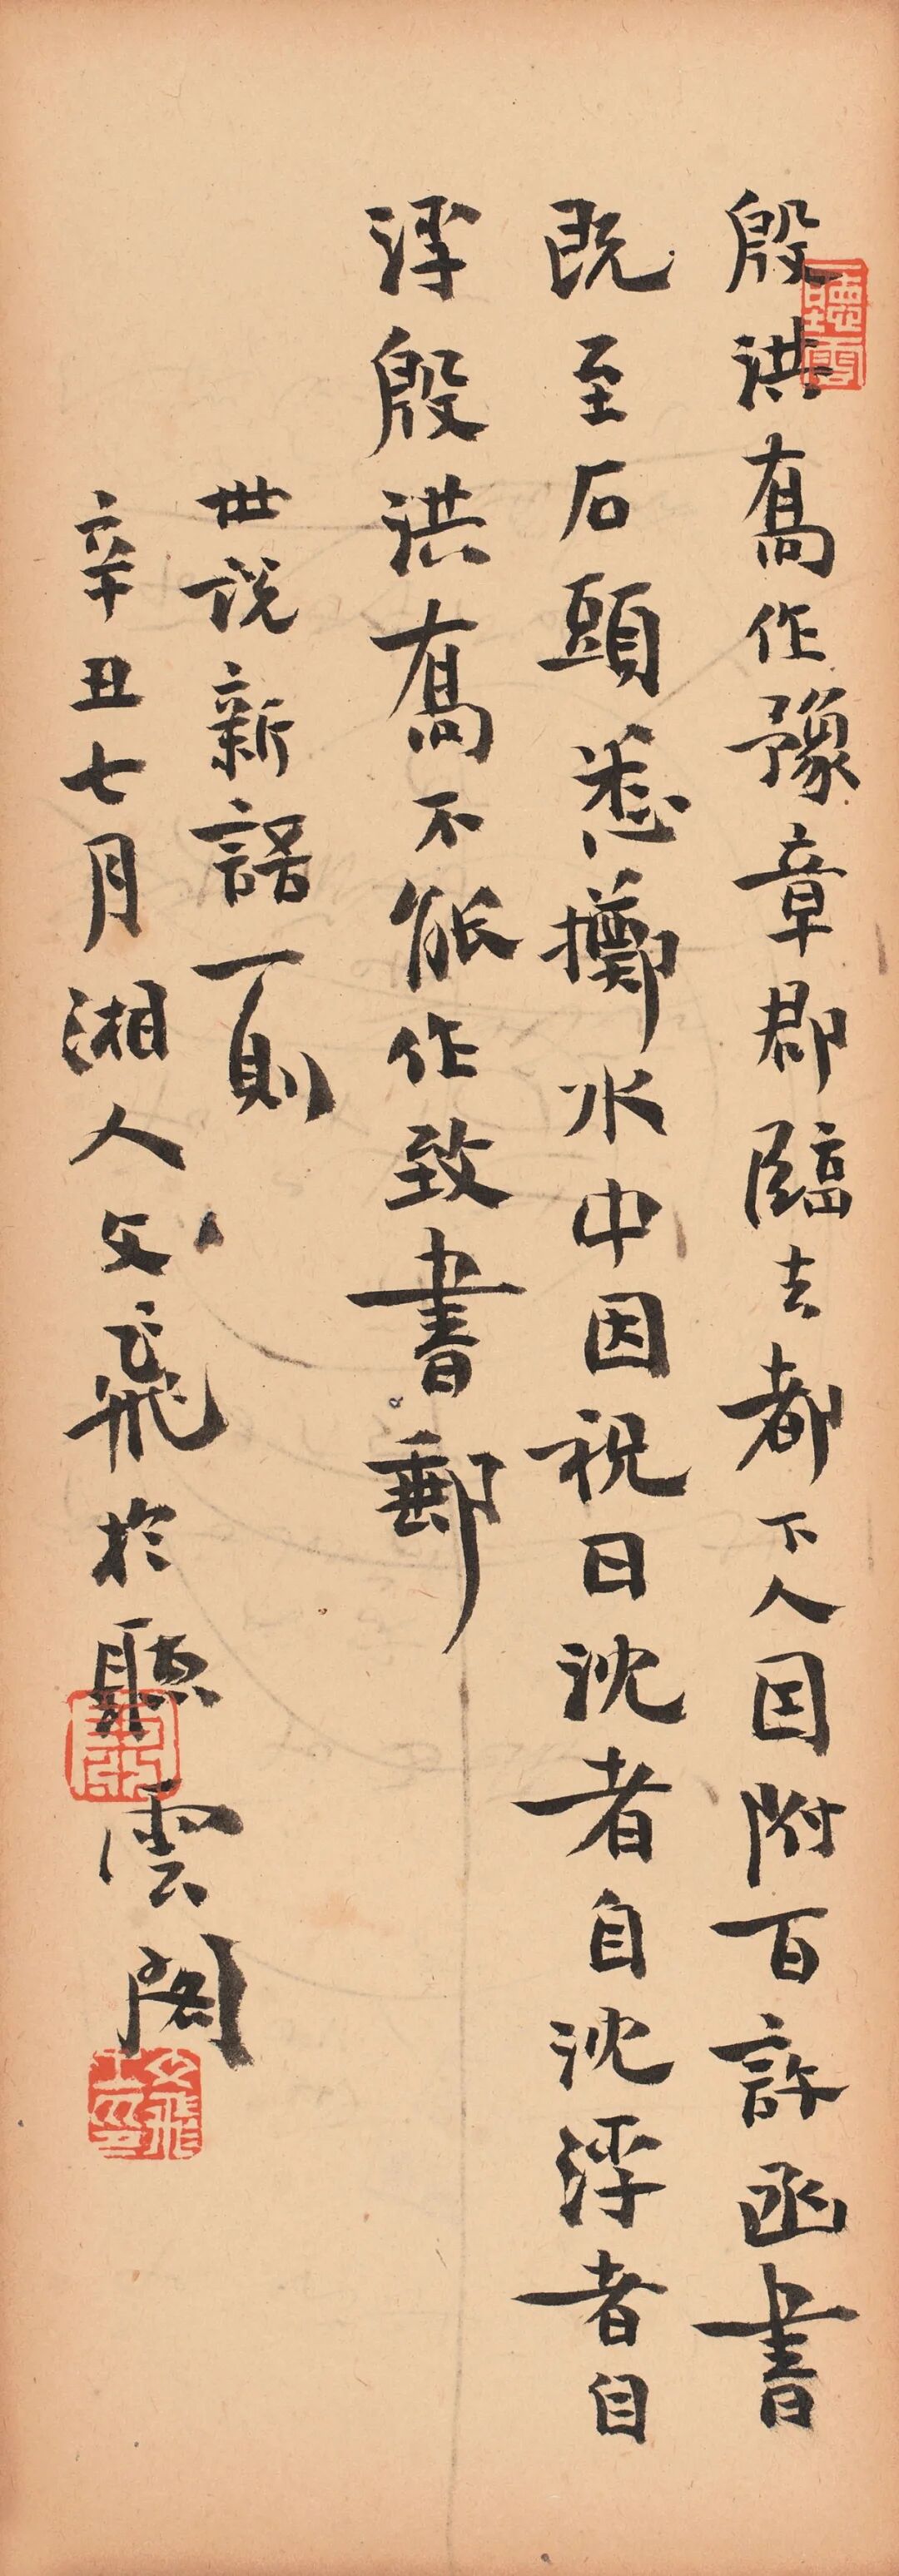 殷洪喬作豫章郡臨去都下人因附百許函書
既至石頭悉擲水中因祝曰沈者自沈浮者自
浮殷洪喬不能作致書郵
世说新語一則
辛丑七月湘人文飛於聽雲閣
聽雲